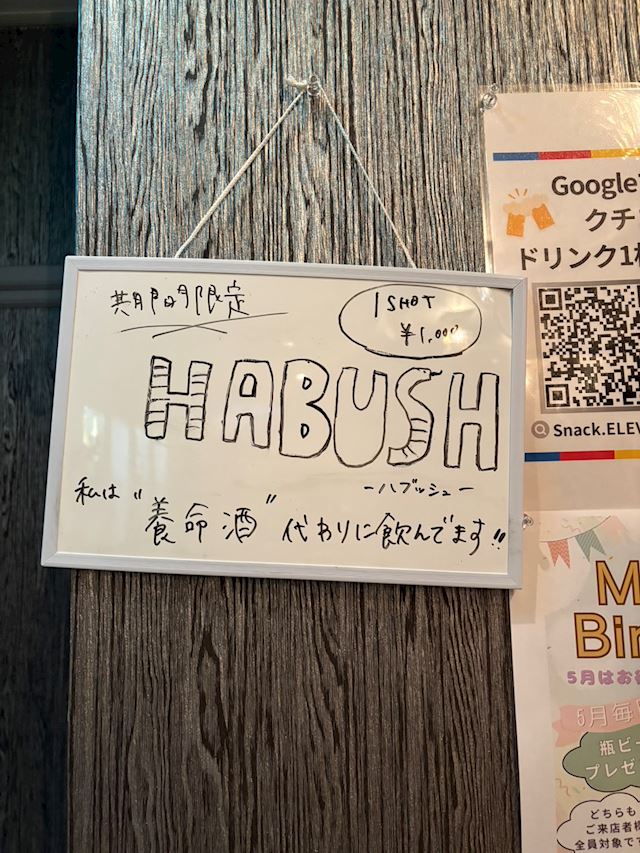 期間限定
1 SHOT
¥1,000
HABUSH
ーハブッシュー
私は"養命酒"代わりに飲んでます!!
Google
クチ
ドリンク1
Snack.ELEV
Bir
5月はお
5月毎
瓶ビー
プレゼ
どちらも
ご来店者様
全員対象です